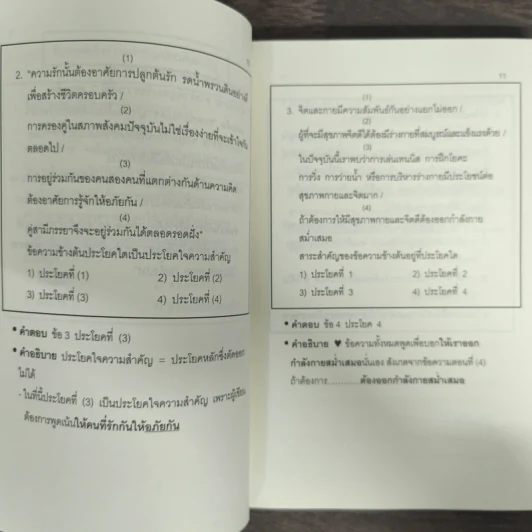 (1)
2. "ความรักนั้นต้องอาศัยการปลูกต้นรัก รดน้ำพรวนดินอย่างดี
เพื่อสร้างชีวิตครอบครัว /
(2)
การครองคู่ในสภาพสังคมปัจจุบันไม่ใช่เรื่องง่ายที่จะเข้าใจกัน
ตลอดไป /
(3)
การอยู่ร่วมกันของคนสองคนที่แตกต่างกันด้านความคิด
ต้องอาศัยการรู้จักให้อภัยกัน /
(4)
คู่สามีภรรยาจึงจะอยู่ร่วมกันได้ตลอดรอดฝั่ง"
ข้อความข้างต้นประโยคใดเป็นประโยคใจความสำคัญ
1) ประโยคที่ (1) 2) ประโยคที่ (2)
3) ประโยคที่ (3) 4) ประโยคที่ (4)
• คำตอบ ข้อ 3 ประโยคที่ (3)
• คำอธิบาย ประโยคใจความสำคัญ = ประโยคหลักซึ่งตัดออก
ไม่ได้
- ในที่นี้ประโยคที่ (3) เป็นประโยคใจความสำคัญ เพราะผู้เขียน
ต้องการพูดเน้นให้คนที่รักกันให้อภัยกัน
(1)
3. จิตและกายมีความสัมพันธ์กันอย่างแยกไม่ออก /
(2)
ผู้ที่จะมีสุขภาพจิตดีได้ต้องมีร่างกายที่สมบูรณ์และแข็งแรงด้วย /
(3)
ในปัจจุบันนี้เราพบว่าการเล่นเทนนิส การฝึกโยคะ
การวิ่ง การว่ายน้ำ หรือการบริหารร่างกายมีประโยชน์ต่อ
สุขภาพกายและจิตมาก /
(4)
ถ้าต้องการให้มีสุขภาพกายและจิตดีต้องออกกำลังกาย
สม่ำเสมอ
สาระสำคัญของข้อความข้างต้นอยู่ที่ประโยคใด
1) ประโยคที่ 1 2) ประโยคที่ 2
3) ประโยคที่ 3 4) ประโยคที่ 4
• คำตอบ ข้อ 4 ประโยค 4
• คำอธิบาย ♥ ข้อความทั้งหมดพูดเพื่อบอกให้เราออก
กำลังกายสม่ำเสมอนั่นเอง สังเกตจากข้อความตอนที่ (4)
ถ้าต้องการ............ต้องออกกำลังกายสม่ำเสมอ